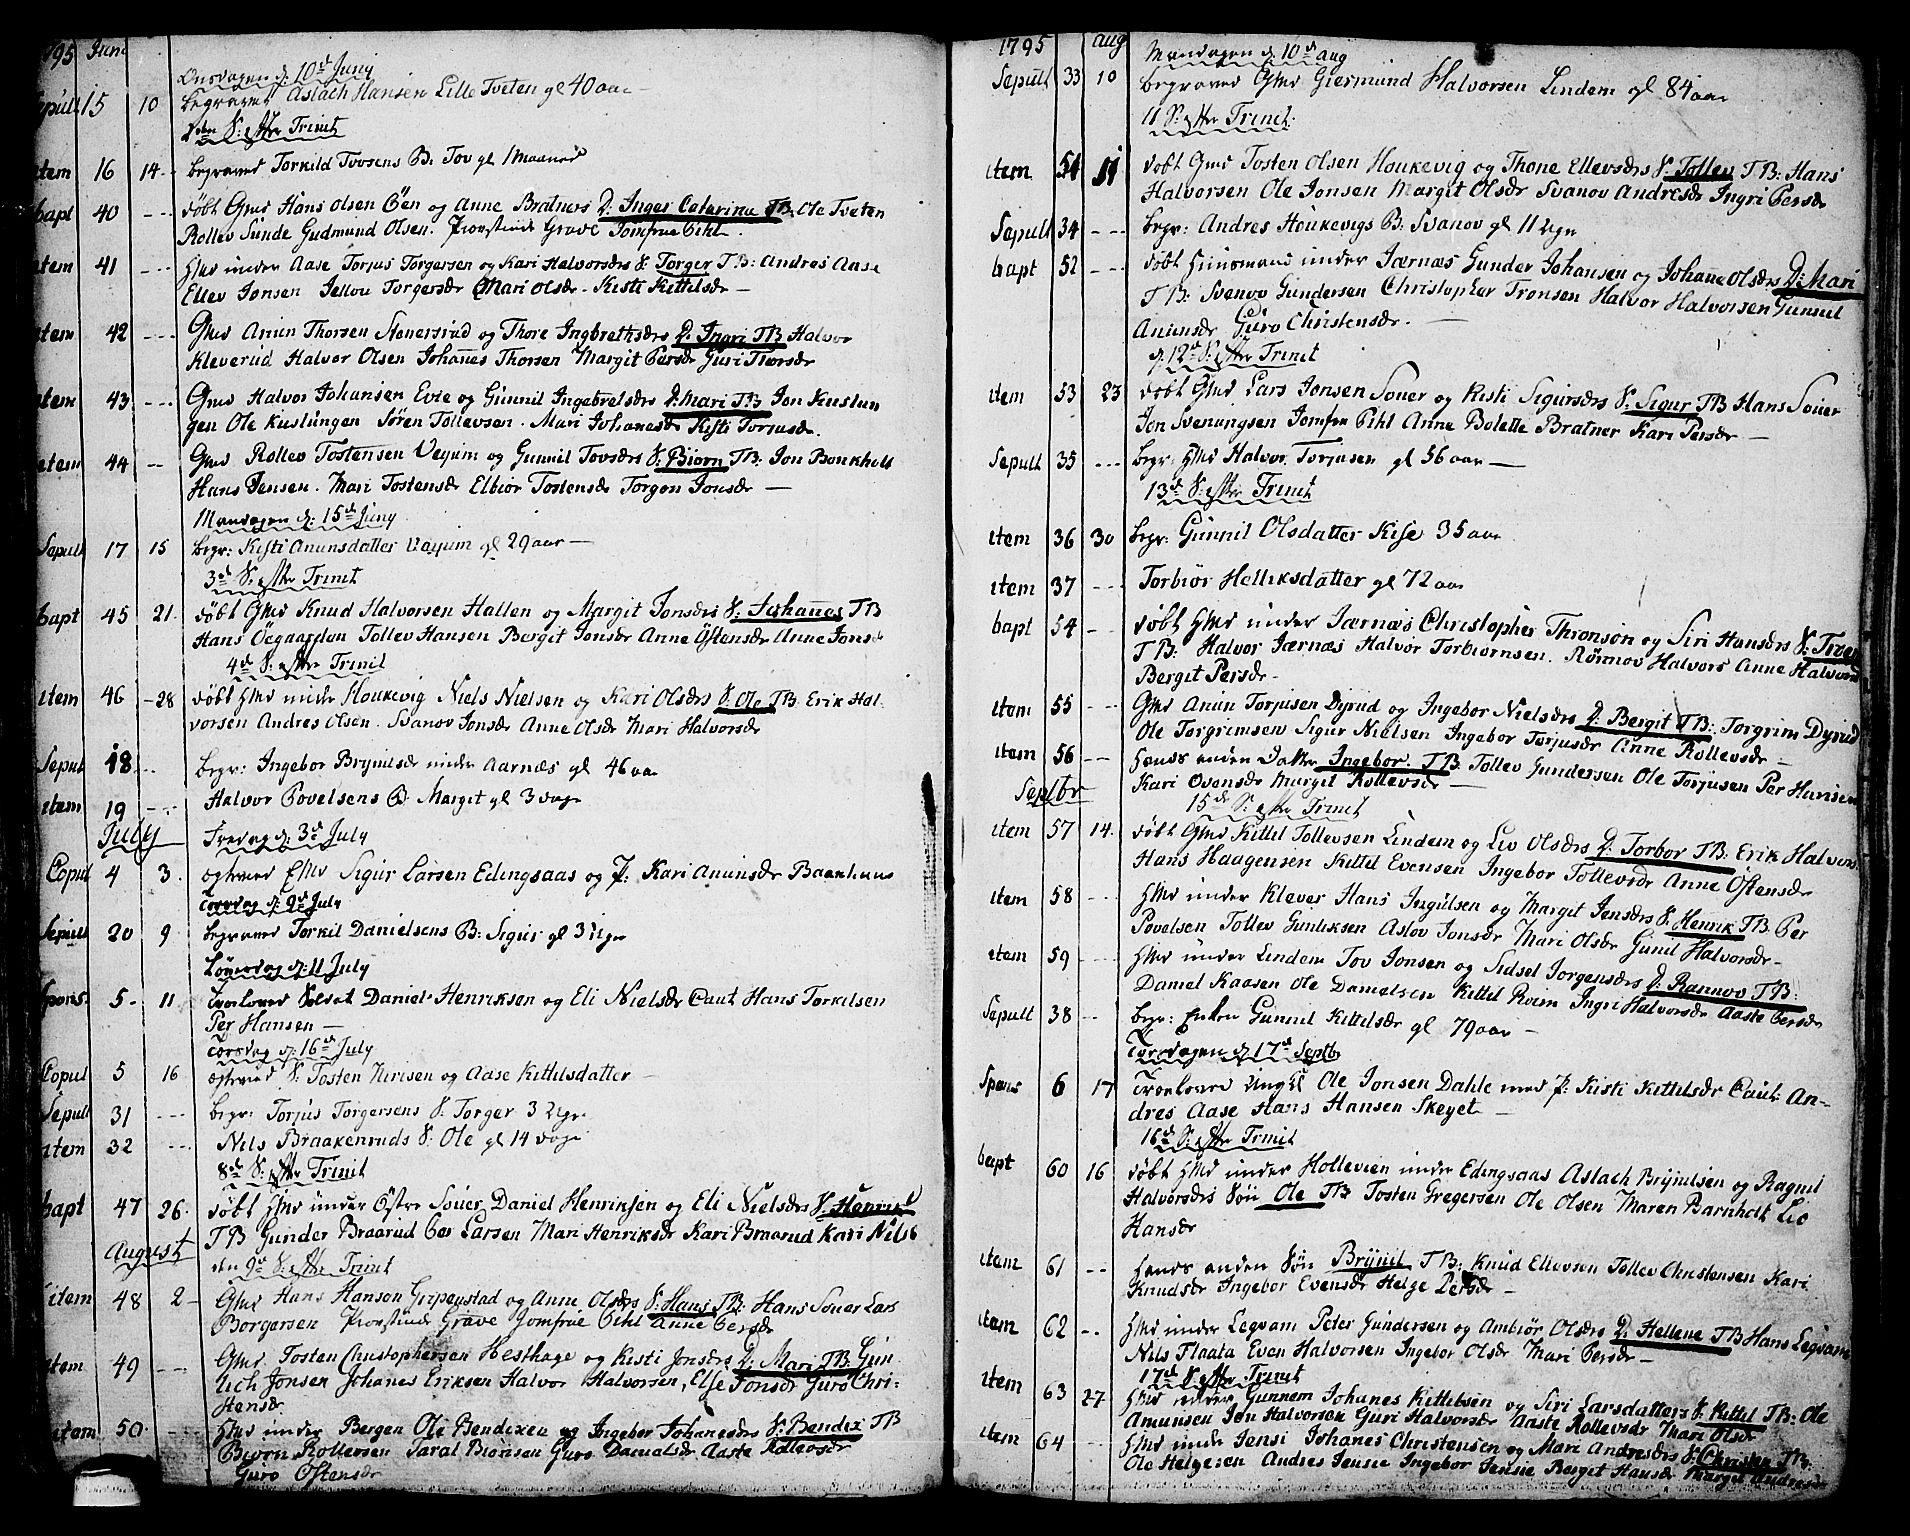 1795 Juni
Onsdagen d: 10de Juny
Sepult 15 10 begravet Aslach Hansen Lille Tveten gl 40 aar
2den S: efter Trinit
item 16 14 begraved Torkild Tovsens B: Tov gl 1 Maaned
bapt 40 --- døbt Gmd Hans Olsen Øen og Anne Bratners D: Inger Catarina TB: Ole Tveten
Rollev Sunde Gudmund Olsen. Provstinde Grave Jomfrue Pihl
item 41 --- Hmd under Aase Torjus Torgersen og Kari Halvorsdr S: Torger TB: Andres Aase
Ellev Jonsen Jellov Torgersdr Mari Olsdr. Kisti Kittilsdr
item 42 --- Gmd Anun Thorsen Stenersrud og Thore Ingbrethsdrs D: Ingri TB Halvor
Kleverud Halvor Olsen Johannes Thorsen Margit Persdr Guri Thorsdr
item 43 --- Gmd Halvor Johansen Evie og Gunnil Ingebretsdrs D: Mari TB Jon Kuslun
gen Ole Kuslungen Søren Tollevsen. Mari Johanesdr Kisti Torjusdr.
item 44 -- Gmd Rollev Tostensen Veyum og Gunnil Tovsdrs S: Biørn TB: Jon Bonkholt
Hans Jensen. Mari Tostensdr Elbiør Tostensdr Torgon Jonsdr
Mandagen d: 15de Juny
Sepult 17 15 begr: Kisti Anunsdatter Veyum gl 29 aar
3de S: efter Trinit
bapt 45 21. døbt Gmd Knud Halvorsen Hallen og Margit Jonsdrs S: Johannes TB
Hans Øegaarden Tollev Hansen Bergit Jonsdr Anne Østensdr Anne Jonsdr
4de S: efter Trinit
item 46 28 døbt Hmd under Houkevig Niels Nielsen og Kari Olsdrs S: Ole TB Erik Hal-
vorsen Andres Olsen. Svanov Jonsdr Anne Olsdr Mari Halvorsdr
Sepult 18 -- begr: Ingebor Brynilsdr under Aarnæs gl 46 aar
item 19 -- Halvor Povelsens B: Margit gl 3 dage
July Fredag d: 3de July
Copul 4 3. egteviet Hmd Sigur Larsen Edingsaas og P: Kari Anunsdr Baanhuus
Torsdag d: 9de July
Sepult 20 9 begraved Torkil Danielsens B: Sigur gl 3 Uger
Løuerdag d: 11 July
Spons. 5. 11 Troeloved Soldat Daniel Henriksen og Eli Nielsdr Caut Hans Torkilsen
Per Hansen
Torsdag d: 16de July
Copul 5 16 egteviet S: Tosten Nirisen og Aase Kittilsdatter
Sepult 31 --- begr: Torjus Torgersens S: Torger 3 Uger
item 32 --- Nils Braakenruds S: Ole gl 14 dage
8de S: efter Trinit
bapt 47 26. døbt Hmd under Østre Souer Daniel Henriksen og Eli Nielsdrs S: Henrik
TB Gunder Braarud Per Larsen Mari Henriksdr Kari Braarud Kari Nilsd
August den 9de S: efter Trinit
item 48 2 Gmd Hans Hanson Gripenstad og Anne Olsdrs S: Hans TB: Hans Souer Lars
Borgersen Provstinde Grave Jomfrue Pihl Anne Persdr
item 49 --- Gmd. Tosten Christophersen Hesthage og Kisti Jonsdrs D: Mari TB: Gun
Uch Jonsen Johanes Eriksen Halvor Halvorsen, Else Jonsdr Guro Chri-
stensdr
item 50. -- Hmd under Bergen Ole Bendixen og Ingebor Johanesdrs S: Bendix TB
Biørn Rollevsen Taral Biønsen Guro Danielsdr Aaste Rollevsdr
Guro Østensdr
1795 aug Mandagen d: 10de aug
Sepult 33 10 begraved Gmd Giermund Halvorsen Lindem gl 84 aar
11 S: efter Trinit:
item 51 11 døbt Gmd Tosten Olsen Houkevig og Thone Ellevsdrs S: Tollev TB: Hans
Halvorsen Ole Jonsen Margit Olsdr Svanov Andresdr Ingri Persdr
Sepult 34 --- begr: Andres Houkevigs B: Svanov gl 11 Uger
bapt 52 --- døbt Huusmand under Jærnæs Gunder Johansen og Johane Olsdrs D: Mari
TB: Svenov Gundersen Christopher Tronsen Halvor Halvorsen Gunnil
Anunsdr Guro Christensdr.
d. 12te S: efter Trinit
item 53 23 døbt Gmd Lars Jonsen Souer og Kisti Sigursdrs S: Sigur TB Hans Souer
Jon Svenungsen Jomfru Pihl Anne Bolette Bratner Kari Persdr
Sepult 35 --- begr: Hmd Halvor Torjusen gl 56 aar
13de S: efter Trinit
item 36 30 begr: Gunnil Olsdatter Kise 35 aar
item 37 --- Torbiør Helliksdatter gl 72 aar
bapt 54 -- døbt Hmd under Jærnæs Christopher Thronson og Siri Hansdrs S: Tron
TB: Halvor Jærnæs Halvor Torbiornsen. Rønnov Halvors Anne Halvorsd
Bergit Persdr
item 55 --- Gmd Anun Torjusen Dyrud og Ingebor Nielsdrs D: Bergit TB: Torgrim Dyrud
Ole Torgrimsen Sigur Nielsen Ingebor Torjusdr Anne Rollevsdr
item 56 -- Hends anden Datter Ingebor. TB. Tollev Gundersen Ole Torjusen Per Hansen
Kari Ovensdr Margit Rollevsdr
Septbr 15de S: efter Trinit
item 57 14. døbt Gmd Kittil Tollevsen Lindem og Liv Olsdrs D: Torbor TB: Erik Halvors.
Hans Haagensen Kittel Evensen Ingebor Tollevsdr Anne Østensdr
item 58 --- Hmd under Klever Hans Ingulsen og Margit Jensdrs S: Henrik TB Per
Povelsen Tollev Gunliksen Aslov Jonsdr Mari Olsdr Gunil Halvorsdr
item 59 --- Hmd under Lindem Tov Jonsen og Sidsel Jorgensdrs D: Rannov TB:
Daniel Kaasen Ole Danielsen Kittil Roim Ingri Halvorsdr Aaste Persdr
Sepult 38 -- begr: Enken Gunnil Kittilsdr gl 79 aar
Torsdagen d: 17de Septbr
Spons 6 17 Troeloved Ungkl Ole Jonsen Dahle med P: Kisti Kittilsdr Caut: An-
dres Aase Hans Hansen Skeyet
16de S: efter Trinit
bapt 60 16 døbt Hmd under Hollevien under Edingsaas Aslach Brynilsen og Ragnil
Halvorsdrs Søn Ole TB Tosten Gregersen Ole Olsen Maren Barnholt Liv
Hansdr
item 61 -- Hends anden Søn Brynil TB: Knud Ellevsen Tollev Christensen Kari
Knudsdr Ingebor Evensdr Helge Persdr
item 62 -- Hmd under Legvam Peter Gundersen og Ambiør Olsdrs D: Hellene TB Hans Legvam
Nils Flaata Even Halvorsen Ingebor Olsdr Mari Persdr
17de S: efter Trinit
item 63 27 Hmd under Gunnem Johanes Kittilsen og Siri Larsdatters S: Kittil TB: Ole
Amunsen Jon Halvorsen Guri Halvorsdr Aaste Rollevsdr Mari Olsdr
item 64 -- Hmd under Jensi Johanes Christensen og Mari Andresdrs S: Christen TB:
Ole Helgesen Andres Jensie Ingebor Jensie Bergit Hansdr Margit Andresdr